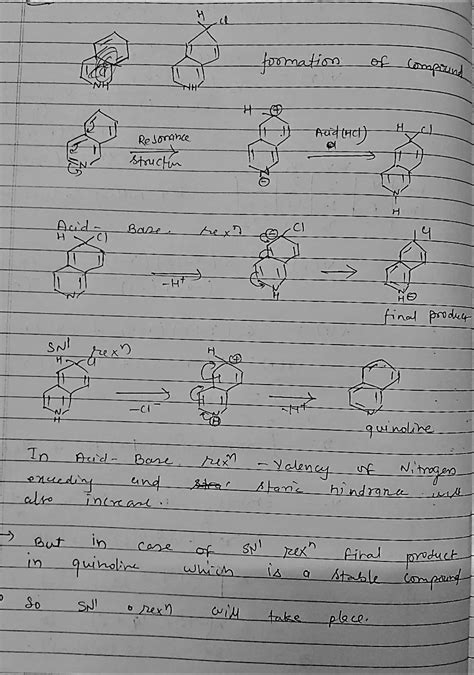 H Cl
NH NH
formation of compound
H ⊕ H Cl
Resonance
Structure
Acid(HCl)
N N ⊖ N
H
Acid - Base rexⁿ
H Cl ⊖ Cl Cl
-H⁺
N N H N H ⊖
final product
SN¹ rexⁿ
H Cl H ⊕
-Cl⁻ -H⁺
N H N H N
quinoline
In Acid - Base rexⁿ - Valency of Nitrogen
exceeding and steric hindrance will
also increase.
→ But in case of SN¹ rexⁿ final product
in quinoline which is a stable compound
So SN¹ rexⁿ will take place.